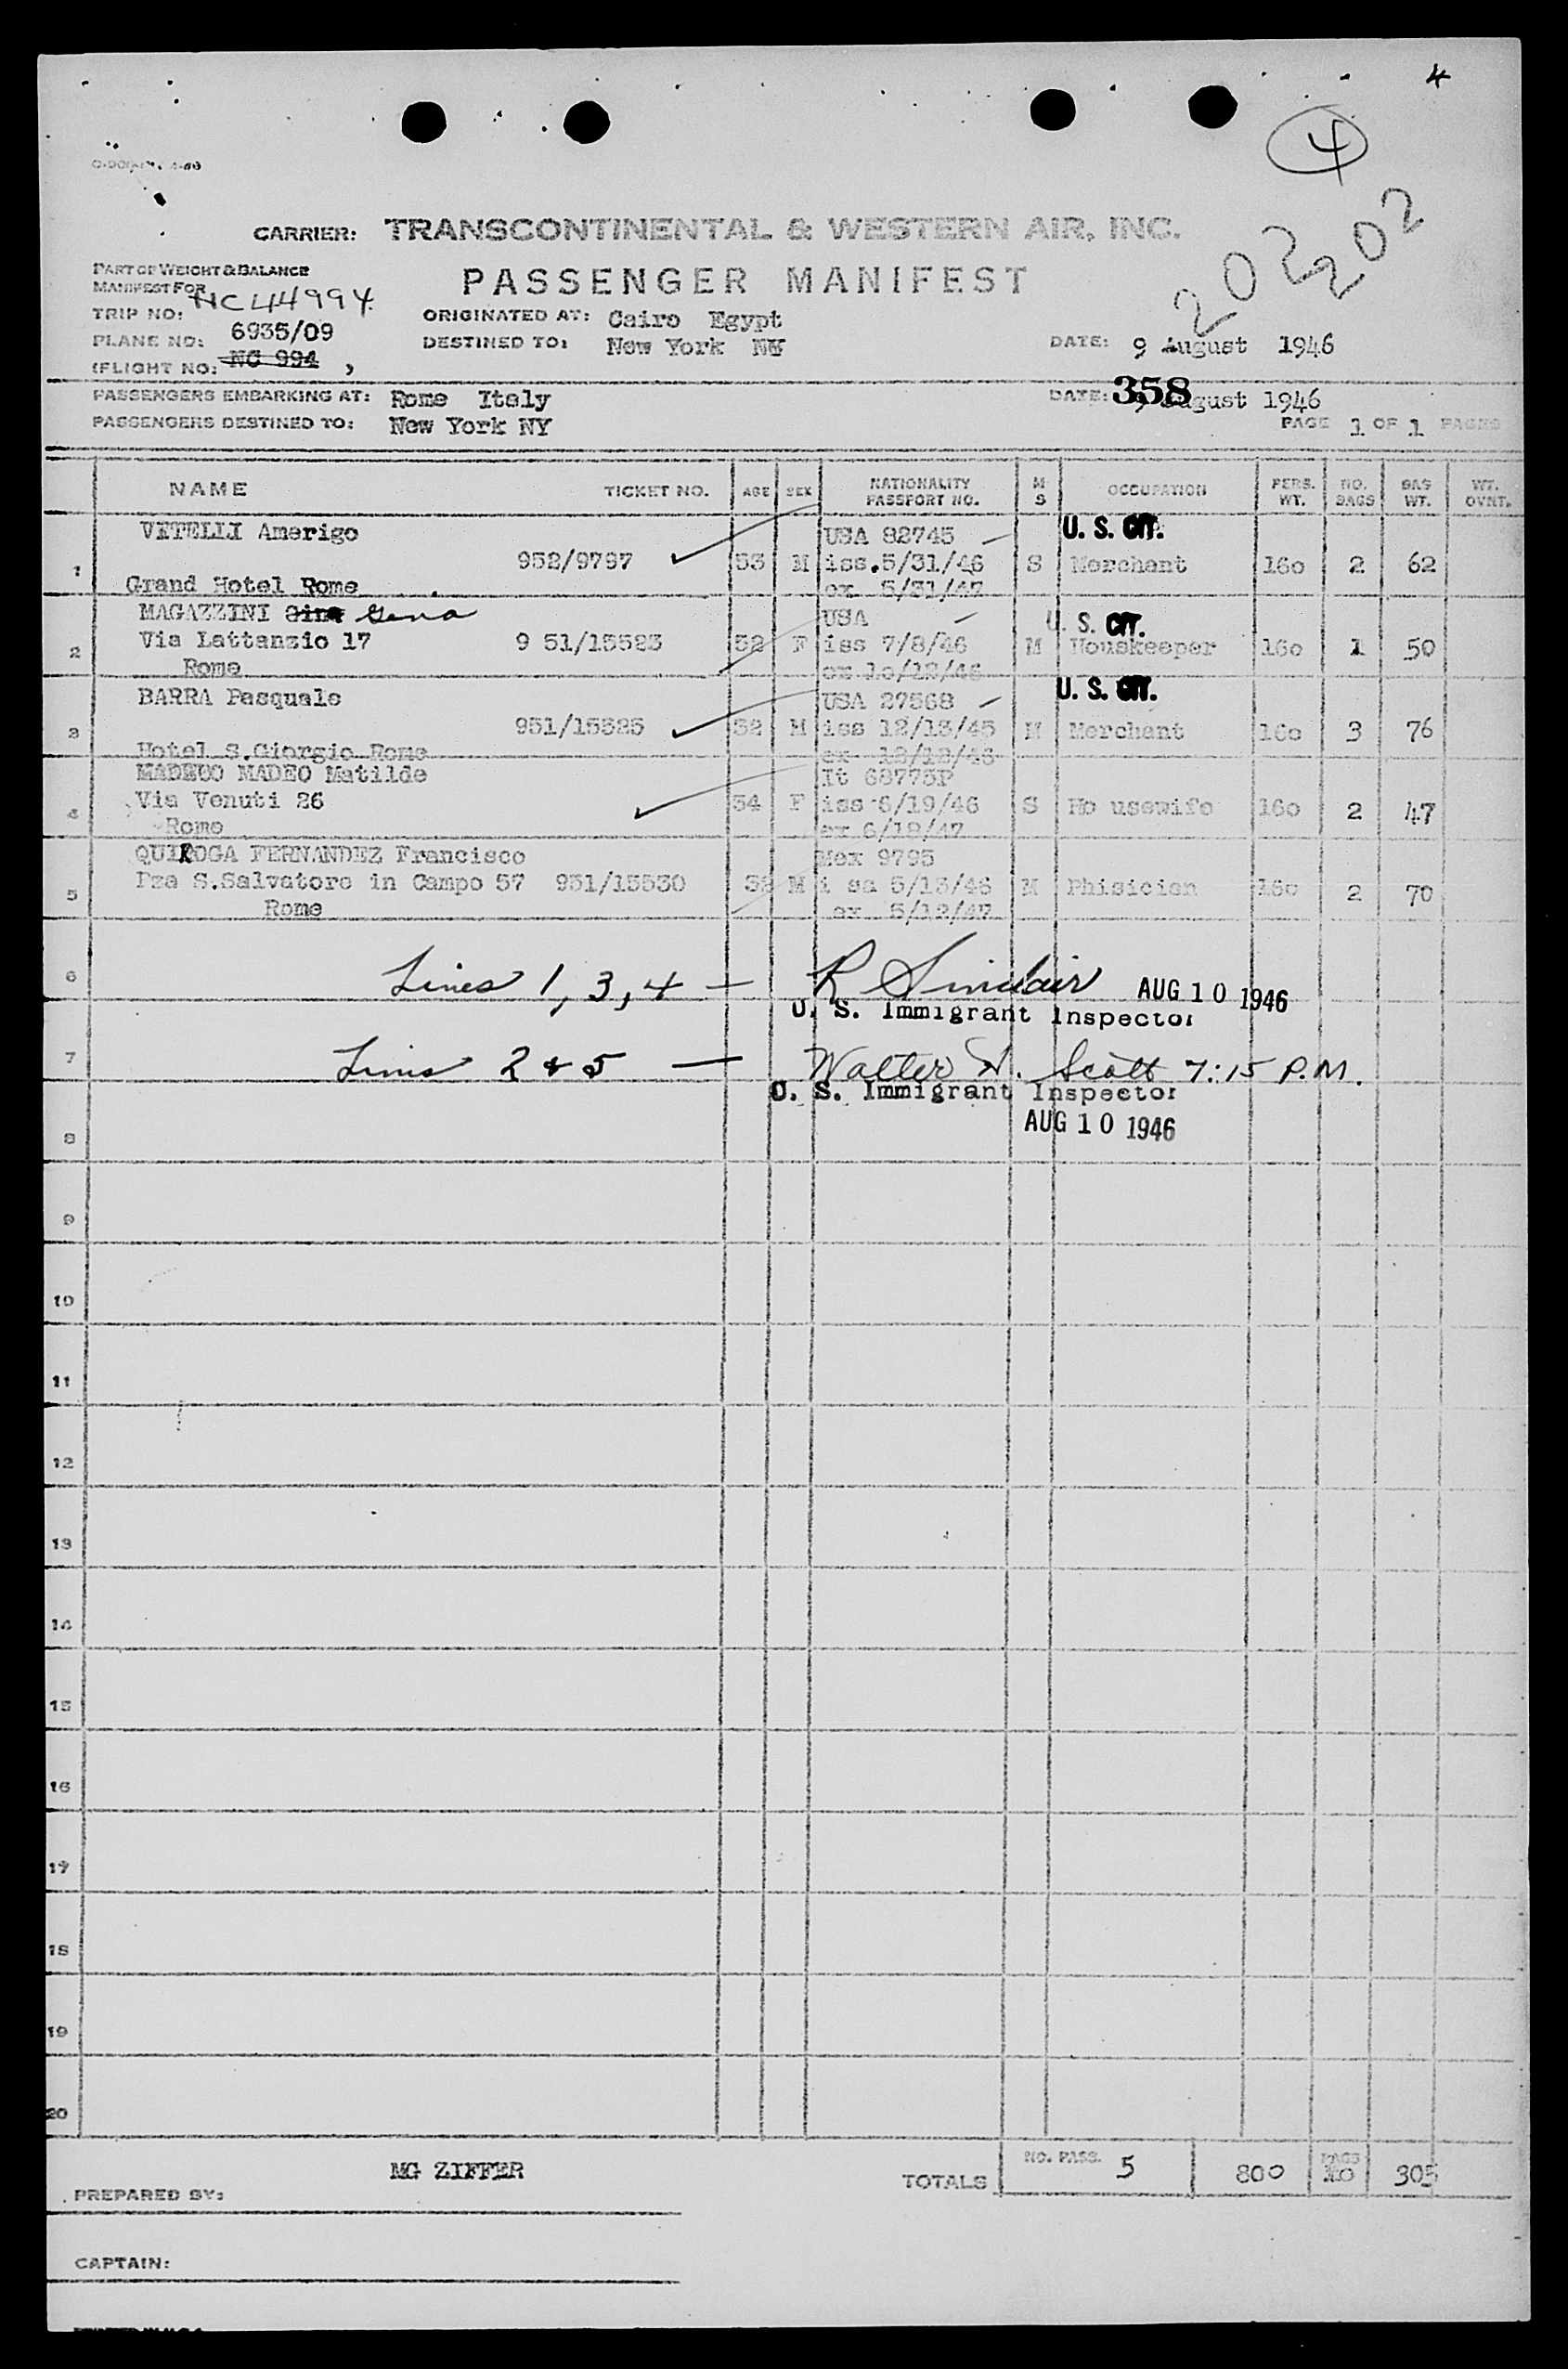 4
4
202
202
CARRIER: TRANSCONTINENTAL & WESTERN AIR, INC.
PASSENGER MANIFEST
PART OF WEIGHT & BALANCE
MANIFEST FOR NC44994
TRIP NO: 6935/09
PLANE NO: NC 994
(FLIGHT NO:
ORIGINATED AT: Cairo Egypt
DESTINED TO: New York NY
DATE: 9 August 1946
PASSENGERS EMBARKING AT: Rome Italy
DATE: 9 August 1946
358
PASSENGERS DESTINED TO: New York NY
PAGE 1 OF 1 PAGES
NAME TICKET NO. AGE SEX NATIONALITY PASSPORT NO. M S OCCUPATION PERS. WT. NO. BAGS BAG WT. WT. OVNT.
VETELLI Amerigo USA 82745 U. S. CIT.
1 952/9797 53 M iss.5/31/46 S Merchant 160 2 62
Grand Hotel Rome ex 5/31/47
MAGAZZINI Gina Gena USA U. S. CIT.
2 Via Lattanzio 17 9 51/15523 52 F iss 7/8/46 M Houskeeper 160 1 50
Rome
BARRA Pasquale USA 27568 U. S. CIT.
3 951/15525 52 M iss 12/13/45 M Merchant 160 3 76
Hotel S.Giorgio Rome ex 12/12/46
MADEO Matilde It 68775P
4 Via Venuti 26 34 F iss 6/19/46 S Ho usewife 160 2 47
Rome ex 6/18/47
QUIROGA FERNANDEZ Francisco Mex 9795
5 Pza S.Salvatore in Campo 57 951/15530 32 M i sa 5/13/46 M Phisician 160 2 70
Rome ex 5/12/47
6 Lines 1, 3, 4 — R Sinclair AUG 10 1946
U. S. Immigrant Inspector
7 Lines 2 & 5 — Walter H. Scott 7:15 P.M.
U. S. Immigrant Inspector
8 AUG 10 1946
9
10
11
12
13
14
15
16
17
18
19
20
PREPARED BY: MG ZIFFER
TOTALS NO. PASS. 5 800 BAGS 10 305
CAPTAIN: